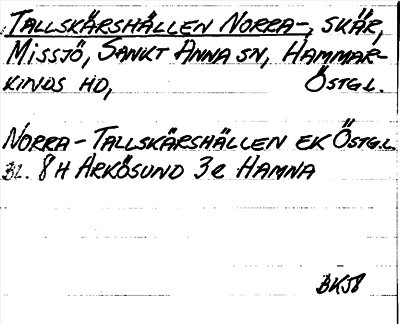 TALLSKÄRSHÄLLEN NORRA-, SKÄR,
MISSJÖ, SANKT ANNA SN, HAMMAR-
KINDS HD, ÖSTGL.
NORRA-TALLSKÄRSHÄLLEN EK ÖSTGL
BL. 8H ARKÖSUND 3e HAMNA
BK58